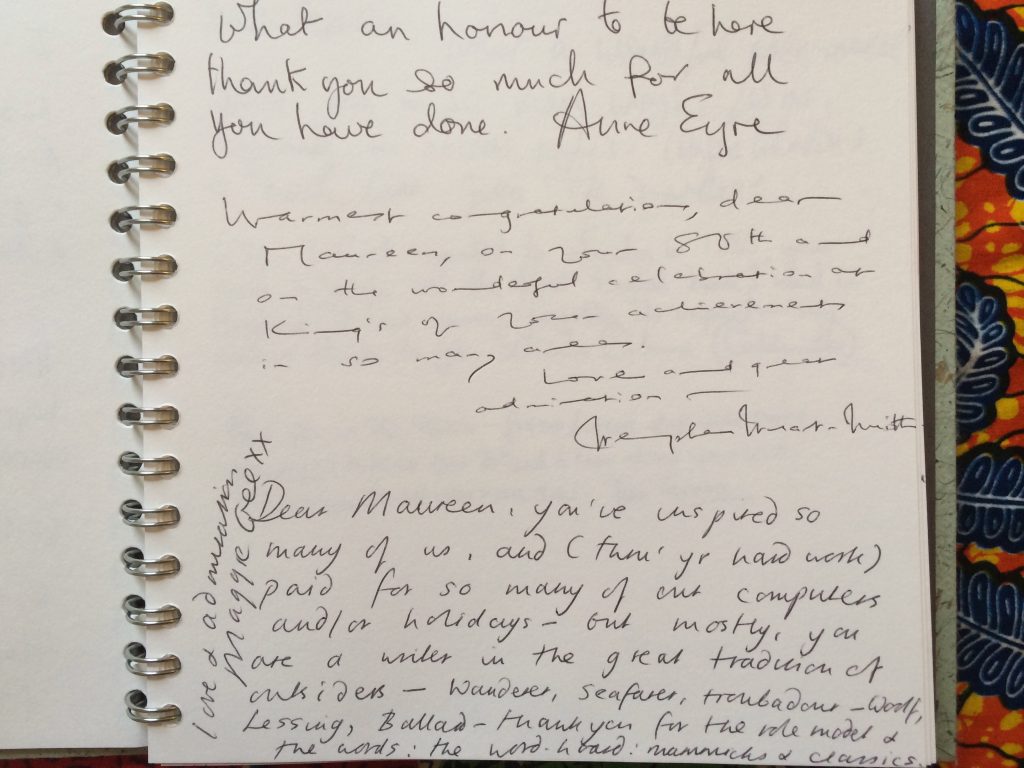 What an honour to be here
thank you so much for all
you have done. Anne Eyre
Warmest congratulations, dear
Maureen, on your 80th and
on the wonderful celebration at
King's of your achievements
in so many areas.
Love and great
admiration —
Dear Maureen, you've inspired so
many of us, and (thro' yr hard work)
paid for so many of our computers
and/or holidays – but mostly, you
are a writer in the great tradition of
outsiders – Wanderer, Seafarer, troubadour – Woolf,
Lessing, Ballad – thank you for the role model &
the words: the word-hoard: mammocks & classics.
love & admiration
Maggie Gee xx